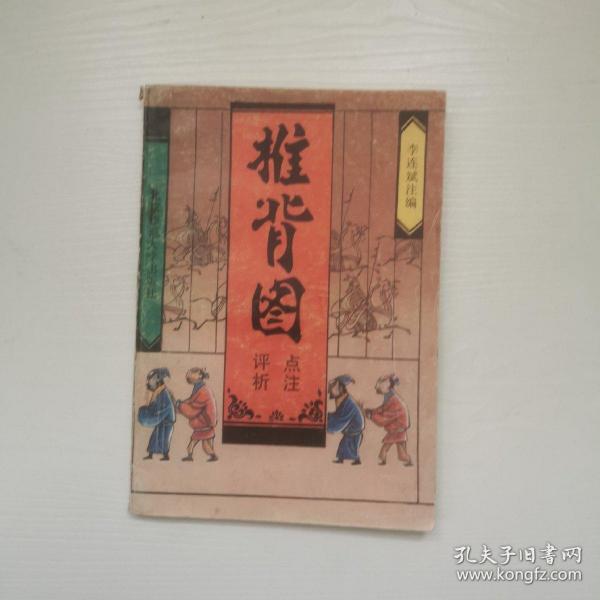 推背图
点注
评析
李连斌注编
出版社
孔夫子旧书网
www.kongfz.com